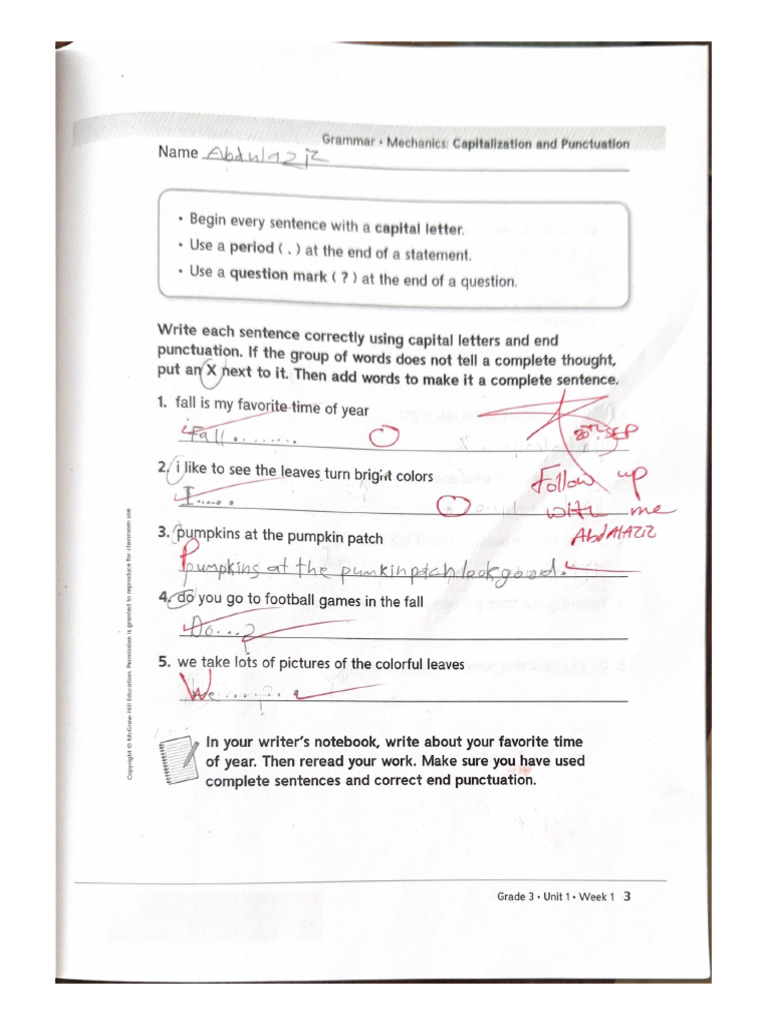 Grammar • Mechanics: Capitalization and Punctuation
Name Abdulaziz
• Begin every sentence with a capital letter.
• Use a period ( . ) at the end of a statement.
• Use a question mark ( ? ) at the end of a question.
Write each sentence correctly using capital letters and end
punctuation. If the group of words does not tell a complete thought,
put an X next to it. Then add words to make it a complete sentence.
1. fall is my favorite time of year
Fall.........
20th SEP
2. i like to see the leaves turn bright colors
I.....
Follow up
with me
AbdAlAZIZ
3. pumpkins at the pumpkin patch
P
pumpkins at the pumkin patch look good.
4. do you go to football games in the fall
Do...?
5. we take lots of pictures of the colorful leaves
We.......
In your writer's notebook, write about your favorite time
of year. Then reread your work. Make sure you have used
complete sentences and correct end punctuation.
Copyright © McGraw-Hill Education. Permission is granted to reproduce for classroom use.
Grade 3 • Unit 1 • Week 1 3